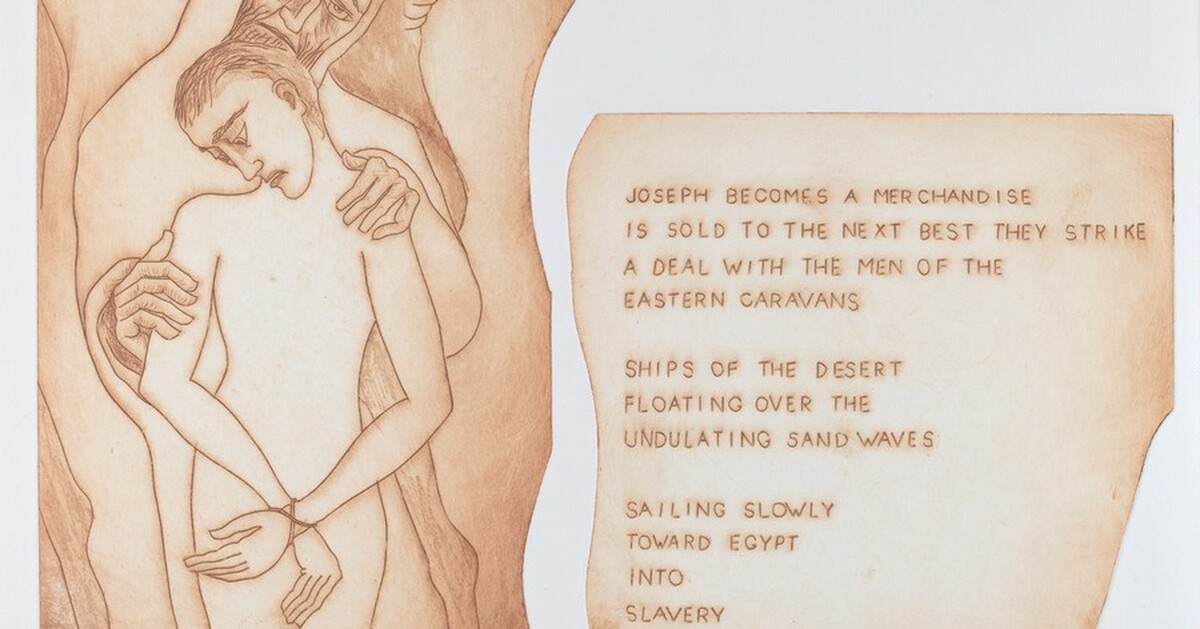 JOSEPH BECOMES A MERCHANDISE
IS SOLD TO THE NEXT BEST THEY STRIKE
A DEAL WITH THE MEN OF THE
EASTERN CARAVANS
SHIPS OF THE DESERT
FLOATING OVER THE
UNDULATING SAND WAVES
SAILING SLOWLY
TOWARD EGYPT
INTO
SLAVERY